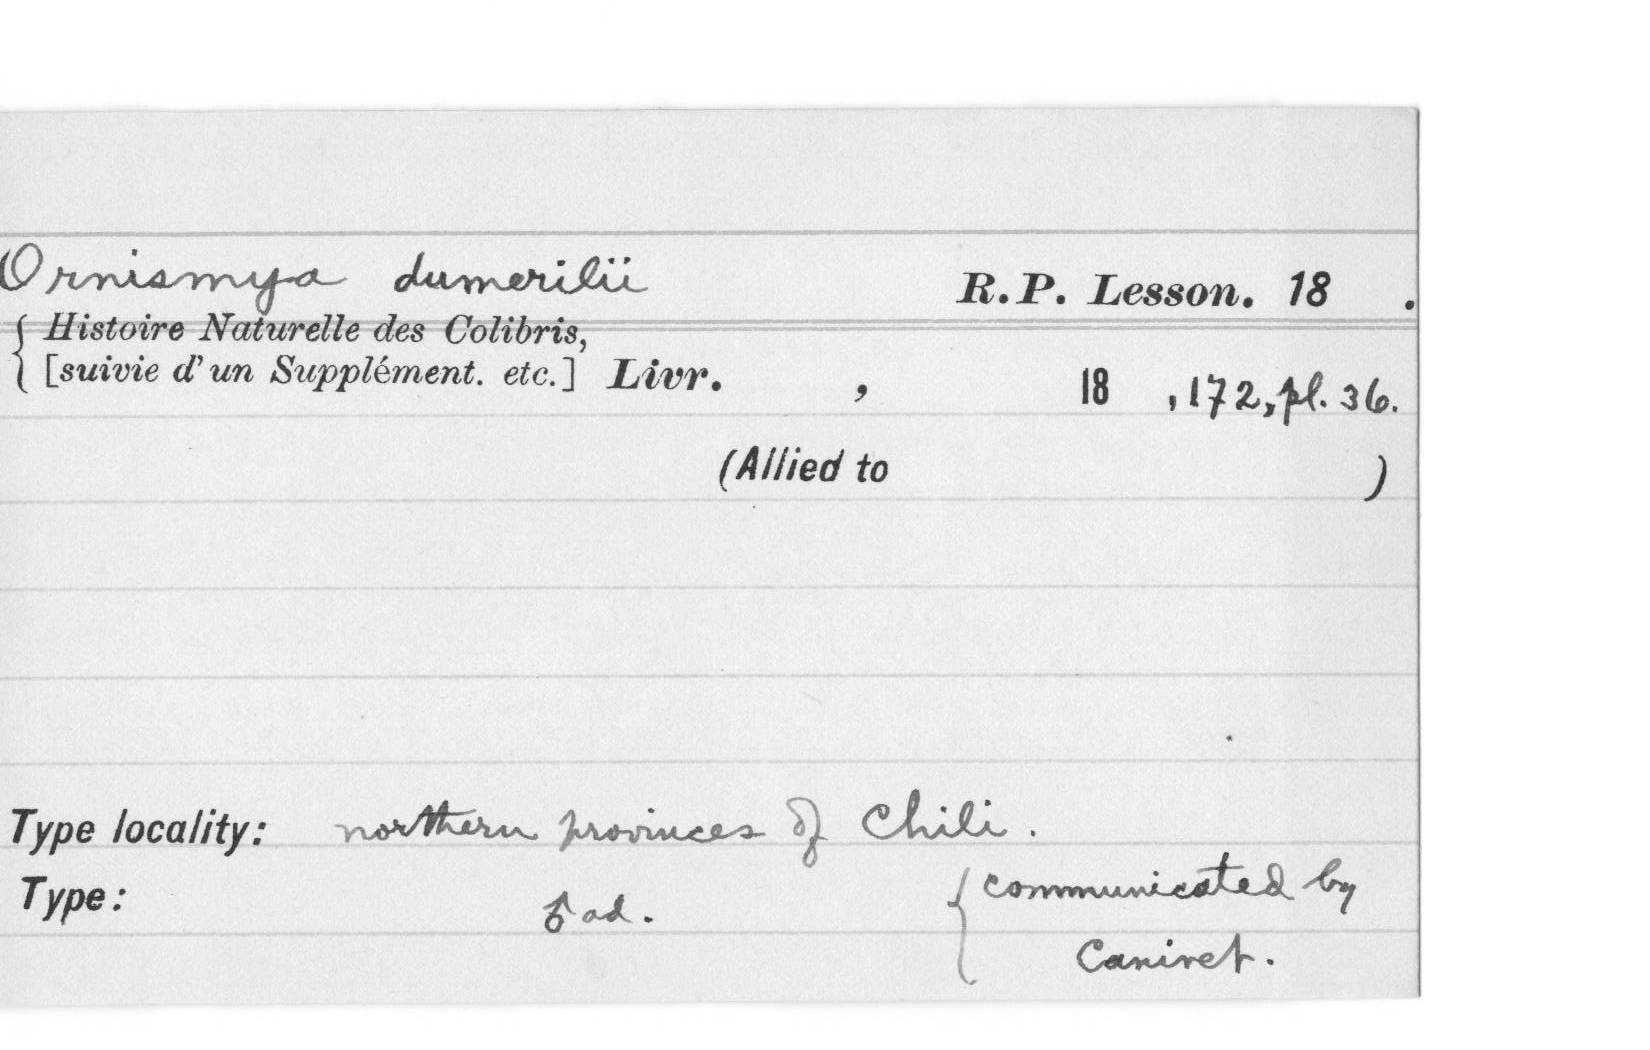 Ornismya dumerilii R.P. Lesson. 18 .
{ Histoire Naturelle des Colibris,
[suivie d'un Supplément. etc.] Livr. , 18 , 172, pl. 36.
(Allied to )
Type locality: northern provinces of Chili.
Type: ♂ ad. { communicated by
Canivet.